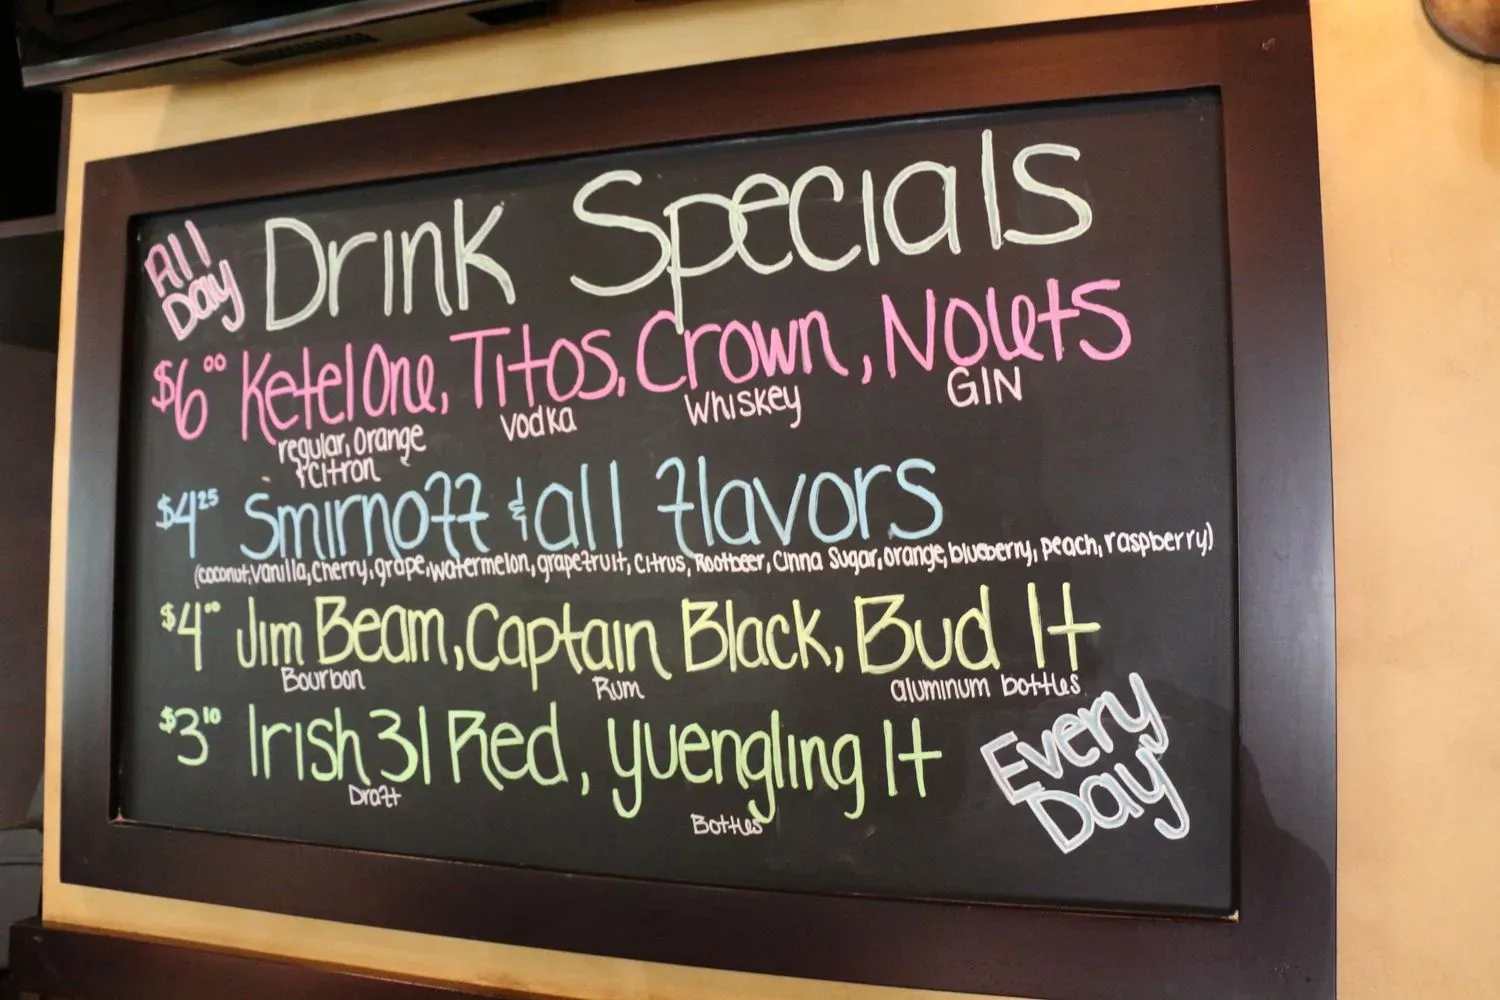 All Day Drink Specials
$6.00 Ketel One, Titos, Crown, Nolets
regular, Orange & Citron Vodka Whiskey GIN
$4.25 Smirnoff & all flavors
(coconut, vanilla, cherry, grape, watermelon, grapefruit, citrus, Rootbeer, Cinna Sugar, orange, blueberry, peach, raspberry)
$4.00 Jim Beam, Captain Black, Bud lt
Bourbon Rum aluminum bottles
$3.10 Irish 31 Red, Yuengling lt
Draft Bottles
Every Day